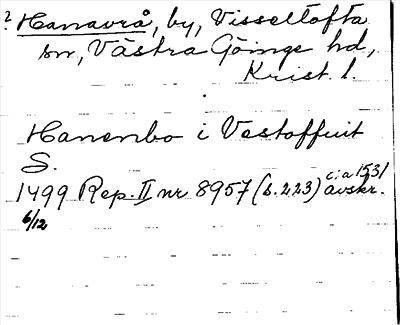 ? Hanavrå, by, Visseltofta
sn, Västra Göinge hd,
Krist. l.
Hanenbo i Vestoffuit
S.
c:a 1531
1499 Rep. II nr 8957 (s. 223) avskr.
6/12